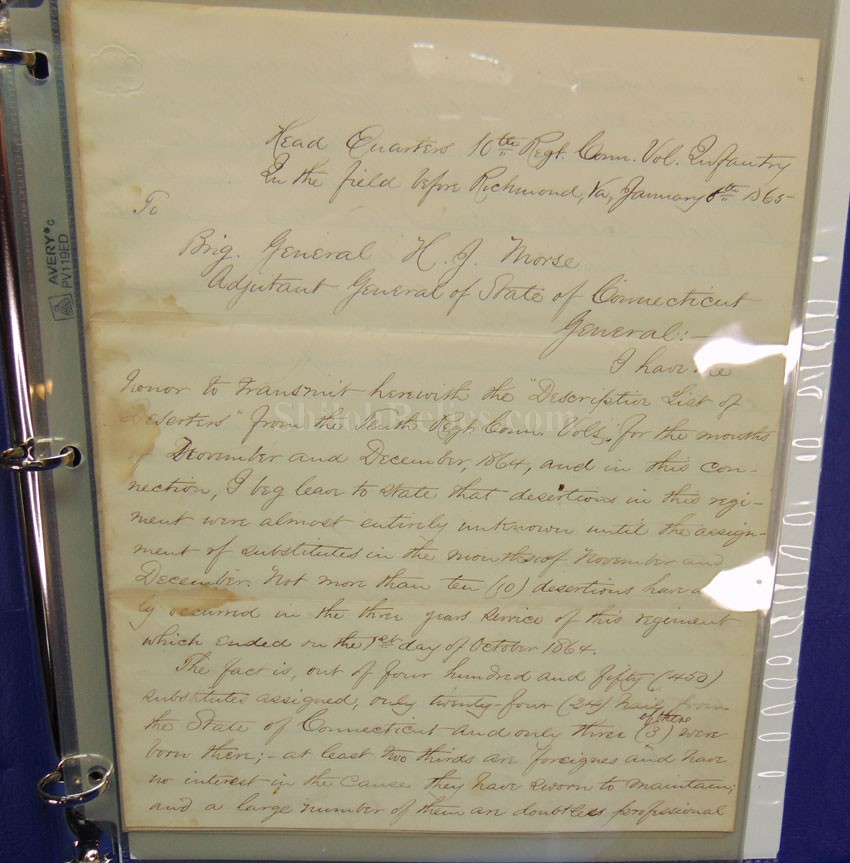 Head Quarters 10th Regt. Conn. Vol. Infantry
In the field before Richmond, Va, January 6th 1865
To
Brig. General H. J. Morse
Adjutant General of State of Connecticut
General:-
I have the
honor to transmit herewith the "Descriptive List of
Deserters" from the Tenth Regt. Conn. Vols. for the months
of November and December, 1864, and in this con-
nection, I beg leave to state that desertions in this regi-
ment were almost entirely unknown until the assign-
ment of substitutes in the months of November and
December. Not more than ten (10) desertions have
ly occurred in the three years service of this regiment
which ended on the 1st day of October 1864.
The fact is, out of four hundred and fifty (450)
substitutes assigned, only twenty-four (24) hail from
the State of Connecticut and only three (3) of these were
born there;- at least two thirds are foreignes and have
no interest in the cause they have sworn to maintain;
and a large number of them are doubtless professional
ShilohRelics.com
AVERY
PV119ED